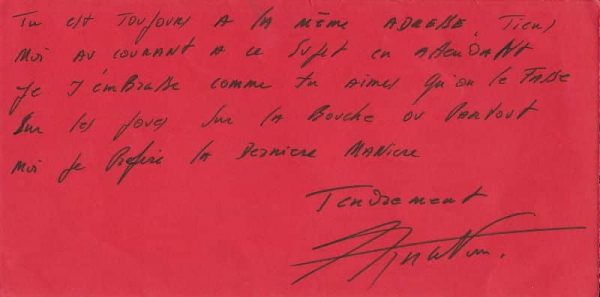 Tu est toujours a la même adresse, tiens
moi au courant a ce sujet en attendant
je t'embrasse comme tu aimes qu'on le fasse
sur les joues sur la bouche ou partout
moi je prefère la derniere maniere
Tendrement